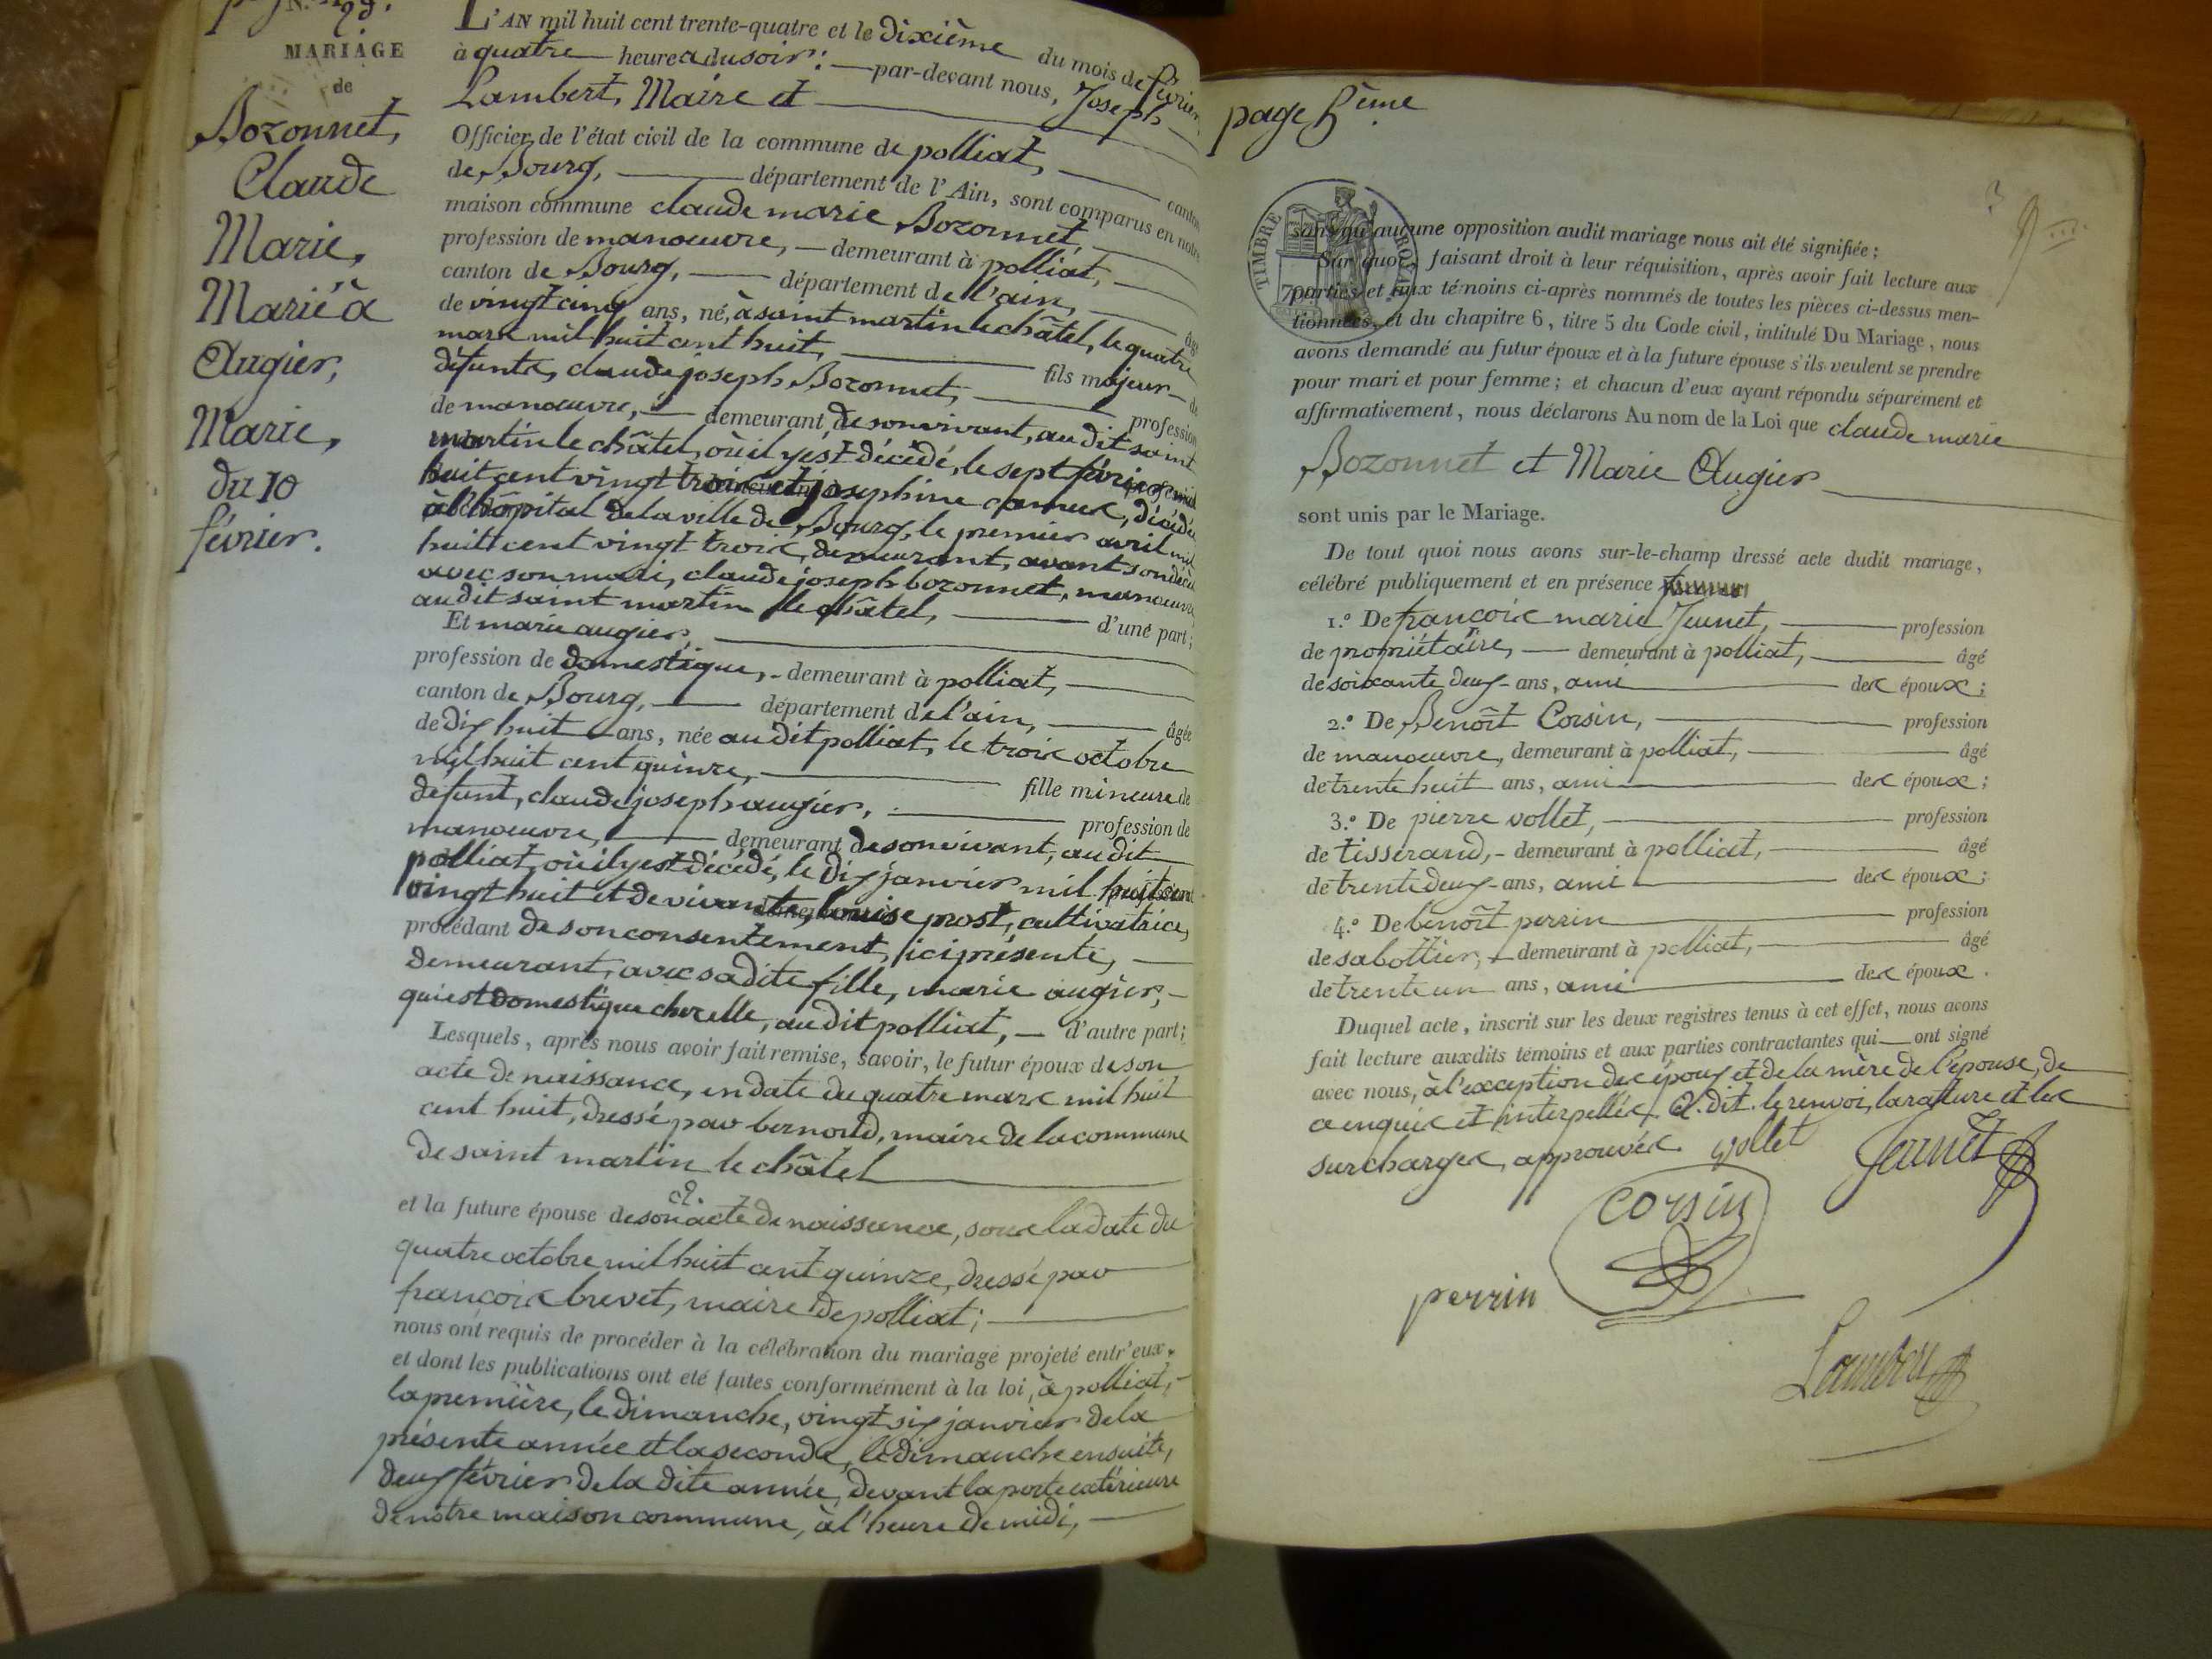 MARIAGE
de
Bozonnet,
Claude
Marie,
Marié à
Augier,
Marie,
du 10
février.
L'AN mil huit cent trente-quatre et le dixième du mois de février
à quatre heures du soir: par-devant nous, Joseph
Lambert, Maire et
Officier de l'état civil de la commune de polliat, canton
de Bourg, département de l'Ain, sont comparus en notre
maison commune claude marie Bozonnet,
profession de manoeuvre, demeurant à polliat,
canton de Bourg, département de l'ain, âgé
de vingt cinq ans, né, à saint martin le châtel, le quatre
mars mil huit cent huit, fils majeur de
défunts, claude joseph Bozonnet, profession
de manoeuvre, demeurant de son vivant, au dit saint
martin le châtel, où il y est décédé, le sept février mil
huit cent vingt trois et josephine camus, décédée
à l'hôpital de la ville de Bourg, le premier avril mil
huit cent vingt trois, demeurant, avant son décès
avec son mari, claude joseph bozonnet, manoeuvre
au dit saint martin le châtel, d'une part;
Et marie augier,
profession de domestique, demeurant à polliat,
canton de Bourg, département de l'ain, âgée
de dix huit ans, née au dit polliat, le trois octobre
mil huit cent quinze, fille mineure de
défunt, claude joseph augier, profession de
manoeuvre, demeurant de son vivant, au dit
polliat, où il y est décédé, le dix janvier mil huit cent
vingt huit et de vivante, louise prost, cultivatrice,
procédant de son consentement, ici présente,
demeurant, avec sa dite fille, marie augier,
qui est domestique chez elle, au dit polliat, d'autre part;
Lesquels, après nous avoir fait remise, savoir, le futur époux de son
acte de naissance, en date du quatre mars mil huit
cent huit, dressé par bernard, maire de la commune
de saint martin le châtel
et la future épouse de son acte de naissance, sous la date du
quatre octobre mil huit cent quinze, dressé par
françois brevet, maire de polliat;
nous ont requis de procéder à la célébration du mariage projeté entr'eux,
et dont les publications ont été faites conformément à la loi, à polliat,
la première, le dimanche, vingt six janvier de la
présente année et la seconde, le dimanche ensuite,
deux février de la dite année, devant la porte extérieure
de notre maison commune, à l'heure de midi,
page 5ème
TIMBRE ROYAL
sans qu'aucune opposition audit mariage nous ait été signifiée;
Sur quoi, faisant droit à leur réquisition, après avoir fait lecture aux
parties et aux témoins ci-après nommés de toutes les pièces ci-dessus men-
tionnées, et du chapitre 6, titre 5 du Code civil, intitulé Du Mariage, nous
avons demandé au futur époux et à la future épouse s'ils veulent se prendre
pour mari et pour femme; et chacun d'eux ayant répondu séparément et
affirmativement, nous déclarons Au nom de la Loi que claude marie
Bozonnet et Marie Augier
sont unis par le Mariage.
De tout quoi nous avons sur-le-champ dressé acte dudit mariage,
célébré publiquement et en présence
1.º De françois marie Jeunet, profession
de propriétaire, demeurant à polliat, âgé
de soixante deux ans, ami des époux;
2.º De Benoît Corsin, profession
de manoeuvre, demeurant à polliat, âgé
de trente huit ans, ami des époux;
3.º De pierre vollet, profession
de tisserand, demeurant à polliat, âgé
de trente deux ans, ami des époux;
4.º De benoît perrin profession
de sabottier, demeurant à polliat, âgé
de trente un ans, ami des époux.
Duquel acte, inscrit sur les deux registres tenus à cet effet, nous avons
fait lecture auxdits témoins et aux parties contractantes qui ont signé
avec nous, à l'exception des époux et de la mère de l'épouse, de
ce enquis et interpellés. dit. le renvoi, la rature et les
surcharges, approuvés. vollet Jeunet
corsin
perrin
Lambert